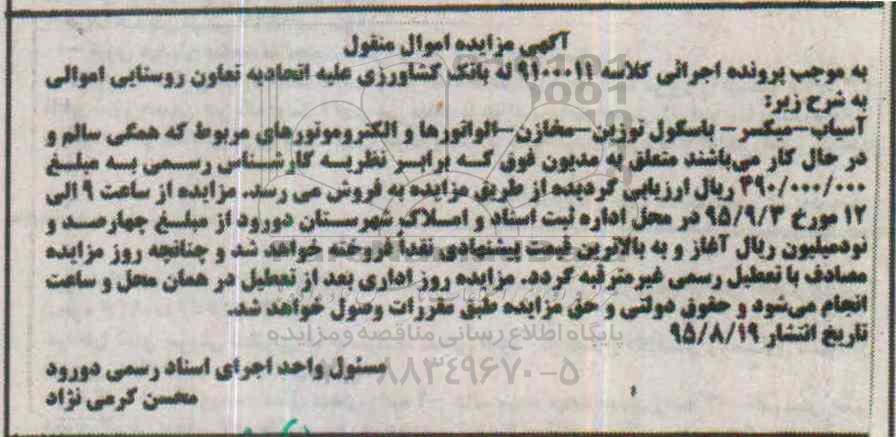 آگهی مزایده اموال منقول
به موجب پرونده اجرائی کلاسه ۹۱۰۰۰۱۱ له بانک کشاورزی علیه اتحادیه تعاون روستایی اموالی
به شرح زیر:
آسیاب-میکسر- باسکول توزین-مخازن-الواتورها و الکتروموتورهای مربوط که همگی سالم و
در حال کار می‌باشند متعلق به مدیون فوق که برابر نظریه کارشناس رسمی به مبلغ
۴۹۰/۰۰۰/۰۰۰ ریال ارزیابی گردیده از طریق مزایده به فروش می رسد. مزایده از ساعت ۹ الی
۱۲ مورخ ۹۵/۹/۳ در محل اداره ثبت اسناد و املاک شهرستان دورود از مبلغ چهارصد و
نودمیلیون ریال آغاز و به بالاترین قیمت پیشنهادی نقداً فروخته خواهد شد و چنانچه روز مزایده
مصادف با تعطیل رسمی غیرمترقبه گردد. مزایده روز اداری بعد از تعطیل در همان محل و ساعت
انجام می‌شود و حقوق دولتی و حق مزایده طبق مقررات وصول خواهد شد.
تاریخ انتشار ۹۵/۸/۱۹
پایگاه اطلاع رسانی مناقصه ومزایده
مسئول واحد اجرای اسناد رسمی دورود
۸۸۳۴۹۶۷۰-۵
محسن کرمی نژاد